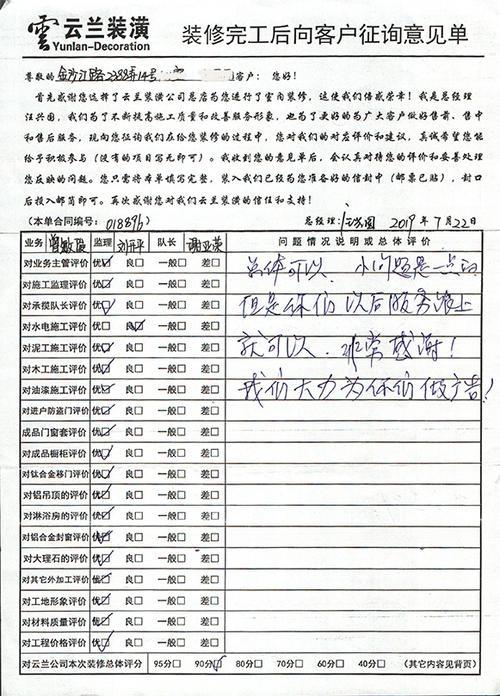 雲 云兰装潢 装修完工后向客户征询意见单
Yunlan-Decoration
尊敬的 金沙江路2388弄14号 客户： 您好！
首先感谢您选择了云兰装潢公司总店为您进行了室内装修，这使我们倍感荣幸！我是总经理
汪兴园，我们为了不断提高施工质量和改善服务形象，也为了更好的为广大客户做好售前、售中
和售后服务，现向您征询我们在给您装修的过程中，您对我们的对应评价和建议，真诚希望您能
给予积极参与（没有的项目写无即可）。我收到您的意见单后，会认真对待您的评价和妥善处理
您反映的问题。您只需将本单填写完整，装入我们已经为您准备好的信封中（邮票已贴），封口
后投入邮筒即可。再次感谢您对我们云兰装潢的信任和支持！
（本单合同编号： 018896） 总经理： 2019 年 7月22日
业务 曾敏 监理 刘开平 队长 谢亚荣 问题情况说明或总体评价
对业务主管评价 优☑ 良□ 一般□ 差□ 总体可以，小问题是一点的
对施工监理评价 优☑ 良□ 一般□ 差□
对承揽队长评价 优☑ 良□ 一般□ 差□ 但是你们以后服务跟上
对水电施工评价 优□ 良☑ 一般□ 差□
对泥工施工评价 优☑ 良□ 一般□ 差□ 就可以．非常感谢！
对木工施工评价 优☑ 良□ 一般□ 差□
对油漆施工评价 优☑ 良□ 一般□ 差□ 我们大力为你们做广告！
对进户防盗门评价 优☑ 良□ 一般□ 差□
成品门窗套评价 优☑ 良□ 一般□ 差□
对成品橱柜评价 优☑ 良□ 一般□ 差□
对钛合金移门评价 优☑ 良□ 一般□ 差□
对铝吊顶的评价 优☑ 良□ 一般□ 差□
对淋浴房的评价 优☑ 良□ 一般□ 差□
对铝合金封窗评价 优☑ 良□ 一般□ 差□
对大理石的评价 优☑ 良□ 一般□ 差□
对其它外加工评价 优☑ 良□ 一般□ 差□
对工地形象评价 优☑ 良□ 一般□ 差□
对材料质量评价 优☑ 良□ 一般□ 差□
对工程价格评价 优☑ 良□ 一般□ 差□
对云兰公司本次装修总体评分 95分□ 90分☑ 80分□ 70分□ 60分□ 40分□ （其它内容见背页）